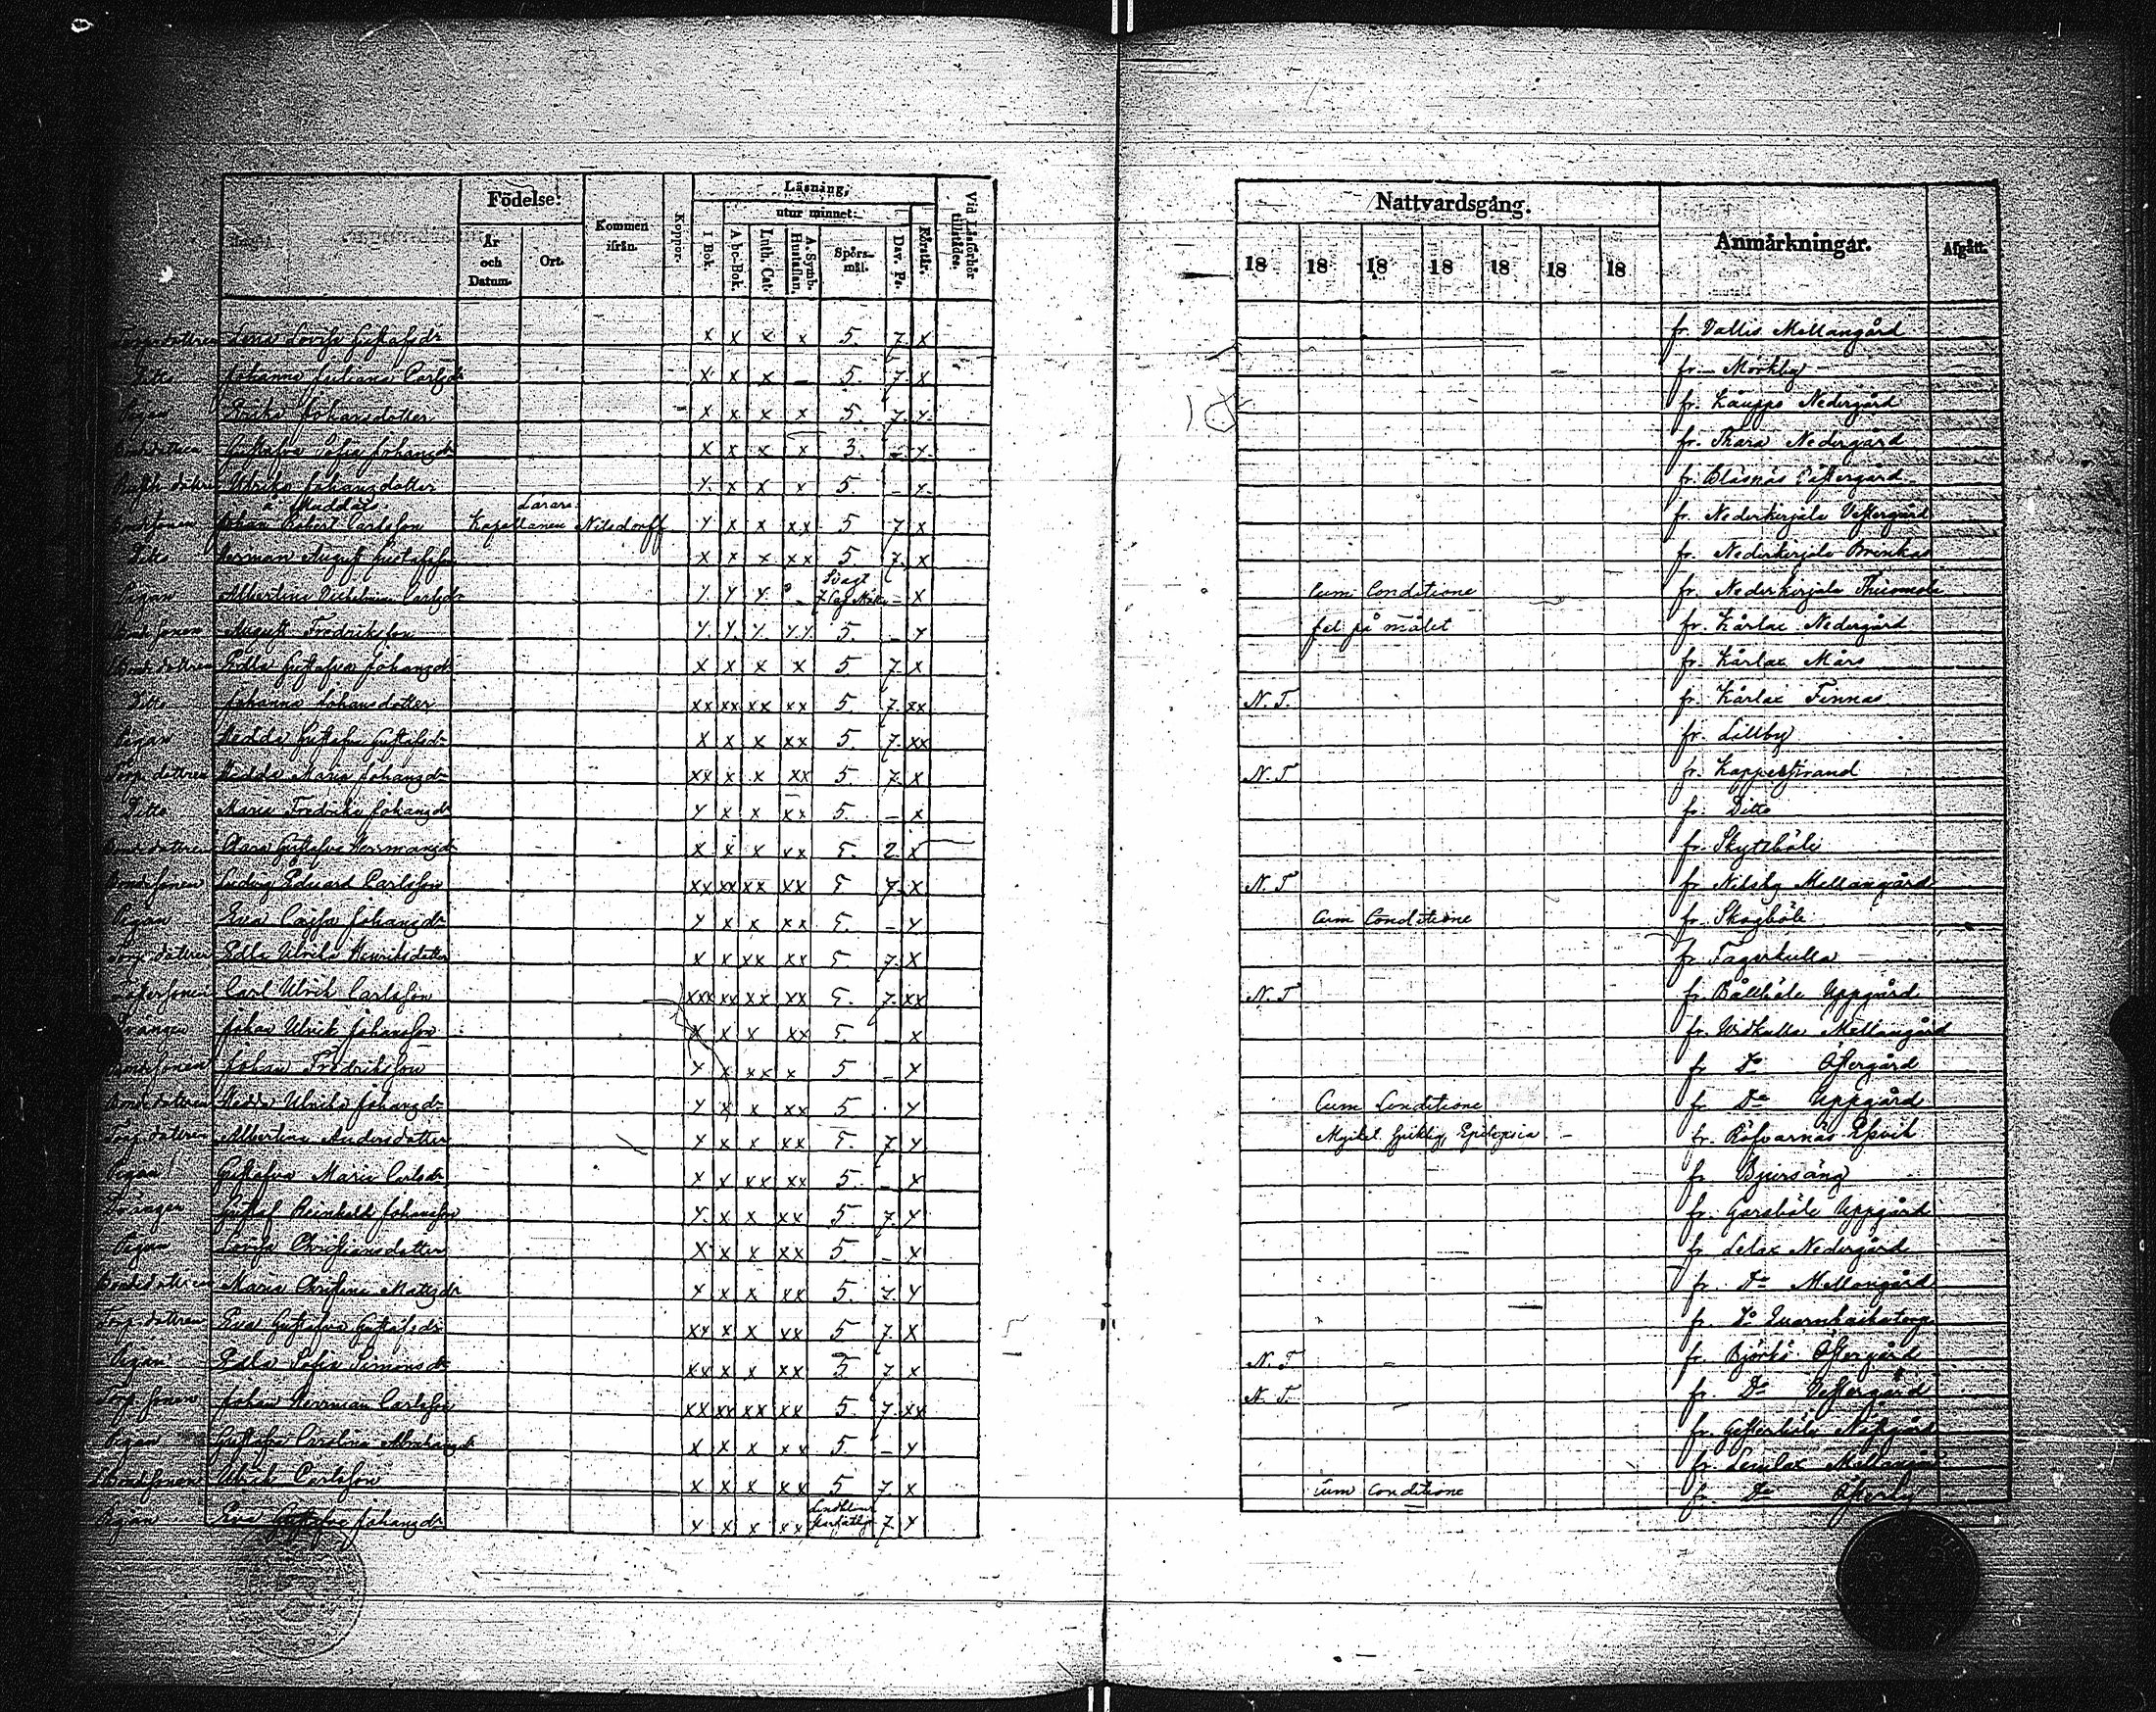 Födelse: Kommen ifrån. Koppor. Läsning, Vid Läsförhör tillstädes. Nattvardsgång. Anmärkningar. Afgått.
År och Datum. Ort. I Bok. utur minnet: Förstår.
Abc-Bok. Luth. Cat. A. Symb. Hustaflan. Spörs-mål. Dav. Ps. 18 18 18 18 18 18 18
Lena Lovisa Gustafsdr x x x x 5. 7. x fr. Vallis Mellangård
Ditto Johanna Juliana Carlsdr x x x – 5. 7. x fr. Mörkby
Pigan Erika Johansdotter x x x x 5. 7. x fr. Kåupps Nedergård
Bondedottren Gustafva Sofia Johansdr x x x x 3. – x fr. Thara Nedergård
Ulrika Johansdotter x x x x 5. – x
Lärare
Bondesonen Johan Robert Carlsson Kapellanen Nilsdorff x x x xx 5 7. x fr. Nederkirjala Vestergård
Ditto Herman August Gustafsson x x x xx 5 7. x fr. Nederkirjala Brinkas
Svagt
Pigan Albertina Vilhelmina Carlsdr x x x – x Cum Conditione fr. Nederkirjala
Bondesonen August Fredriksson x x x xx 5. – x fel på målet fr. Kårlax Nedergård
Bondedottren Edla Gustafva Johansdr x x x x 5 7. x fr. Kårlax Mårs
Ditto Johanna Johansdotter xx xx xx xx 5 7. xx N. T. fr. Kårlax Finnas
Pigan Hedda Gustafva Gustafsdr x x x xx 5. 7. xx fr. Lillby
Torp. dottren Hedda Maria Johansdr xx x x xx 5 7. x N. T fr. Kappelstrand
Ditto Maria Fredrika Johansdr x x x xx 5. – x fr. Ditto
Bondedottren Clara Gustafva Herrmansdr x x x xx 5. 2. x fr. Skyttböle
Bondesonen Ludvig Eduard Carlsson xx xx xx xx 5 7. x N. T fr. Nilsby Mellangård
Pigan Eva Cajsa Johansdr x x x xx 5. – x Cum Conditione fr. Skogböle
Torp. dottren Edla Ulrika Henriksdotter x x xx xx 5. 7. x fr. Fagerkulla
Carl Ulrik Carlsson xxx xx xx xx 5. 7. xx N. T fr. Bållböle Uppgård
Drängen Johan Ulrik Johansson x x x xx 5. – x fr. Widkulla Mellangård
Bondesonen Johan Fredriksson x x xx x 5 – x fr. Do Östergård
Bondedottren Hedda Ulrika Johansdr x x x xx 5 x Cum Conditione fr. Do Uppgård
Torp. dottren Albertina Andersdotter x x x xx 5. 7. x Mycket sjuklig, Epilepsia – fr. Röfvarnäs
Pigan Gustafva Maria Carlsdr x x xx xx 5. – x fr. Bjursäng
Drängen Gustaf Reinhold Johansson x x x xx 5 7 x fr. Garsböle Uppgård
Pigan Lovisa Christiansdotter x x x xx 5. – x fr. Lelax Nedergård
Bondedottren Maria Christina Mattsdr x x x xx 5. 7 x fr. Do Mellangård
Torp dottren Eva Gustafva Gustafsdr xx x x xx 5 7. x fr. Do
Pigan Edla Sofia Simonsdr xx x x xx 5 7 x N. T fr. Björkö Östergård
Torp. sonen Johan Herrman Carlsson xx xx xx xx 5. 7. xx N. T. fr. Do Vestergård
Pigan Gustafva Carolina Abrahamsdr x x x xx 5. – x
Bondesonen Ulrik Carlsson x x x xx 5 7 x fr. Lemlax Mellangård
Pigan Eva Gustafva Johansdr x x x xx 7. x Cum Conditione fr. Do Österby